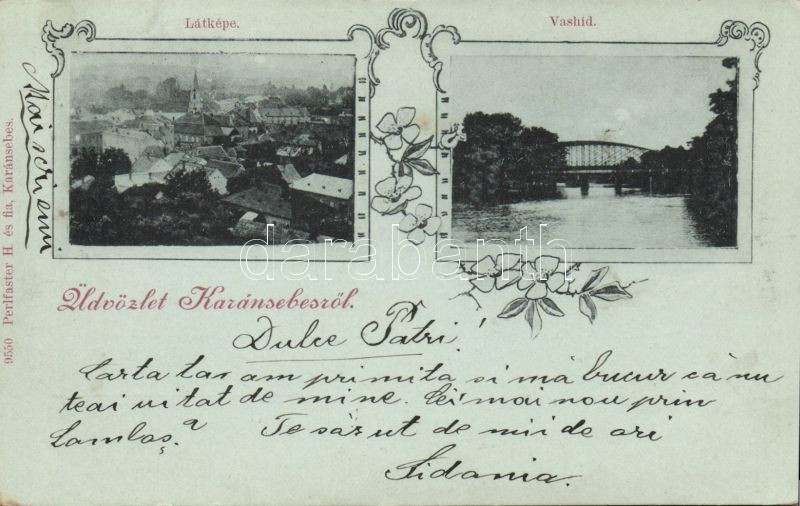 Látképe.
Vashíd.
Mai scriem
9550 Perlfaster H. és fia, Karánsebes.
darabanth.com
Üdvözlet Karánsebesről.
Dulce Patri!
Carta ta o am primita si mă bucur că nu
teai uitat de mine. Cei mai nou prin
Lambaș?
Te sărut de mii de ori
Sidania.